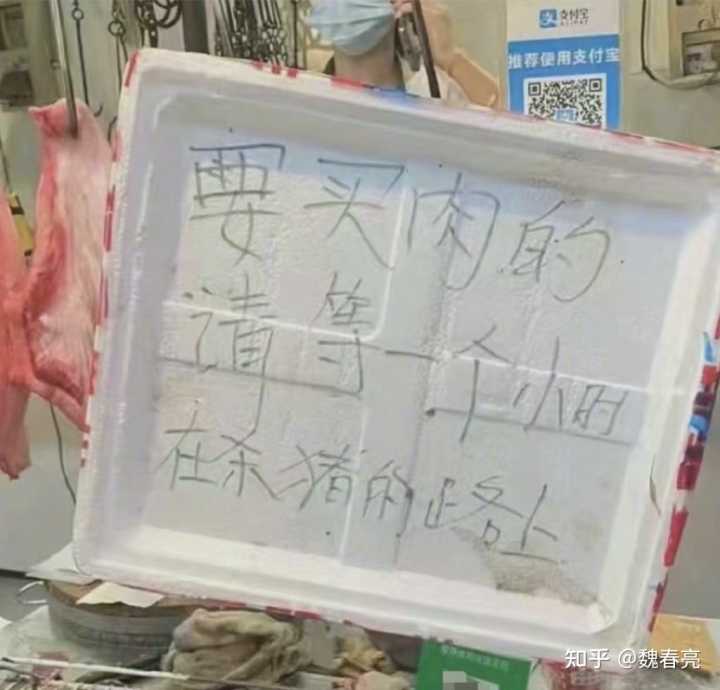 支付宝
ALIPAY
推荐使用支付宝
要买肉的
请等一个小时
在杀猪的路上
知乎 @魏春亮